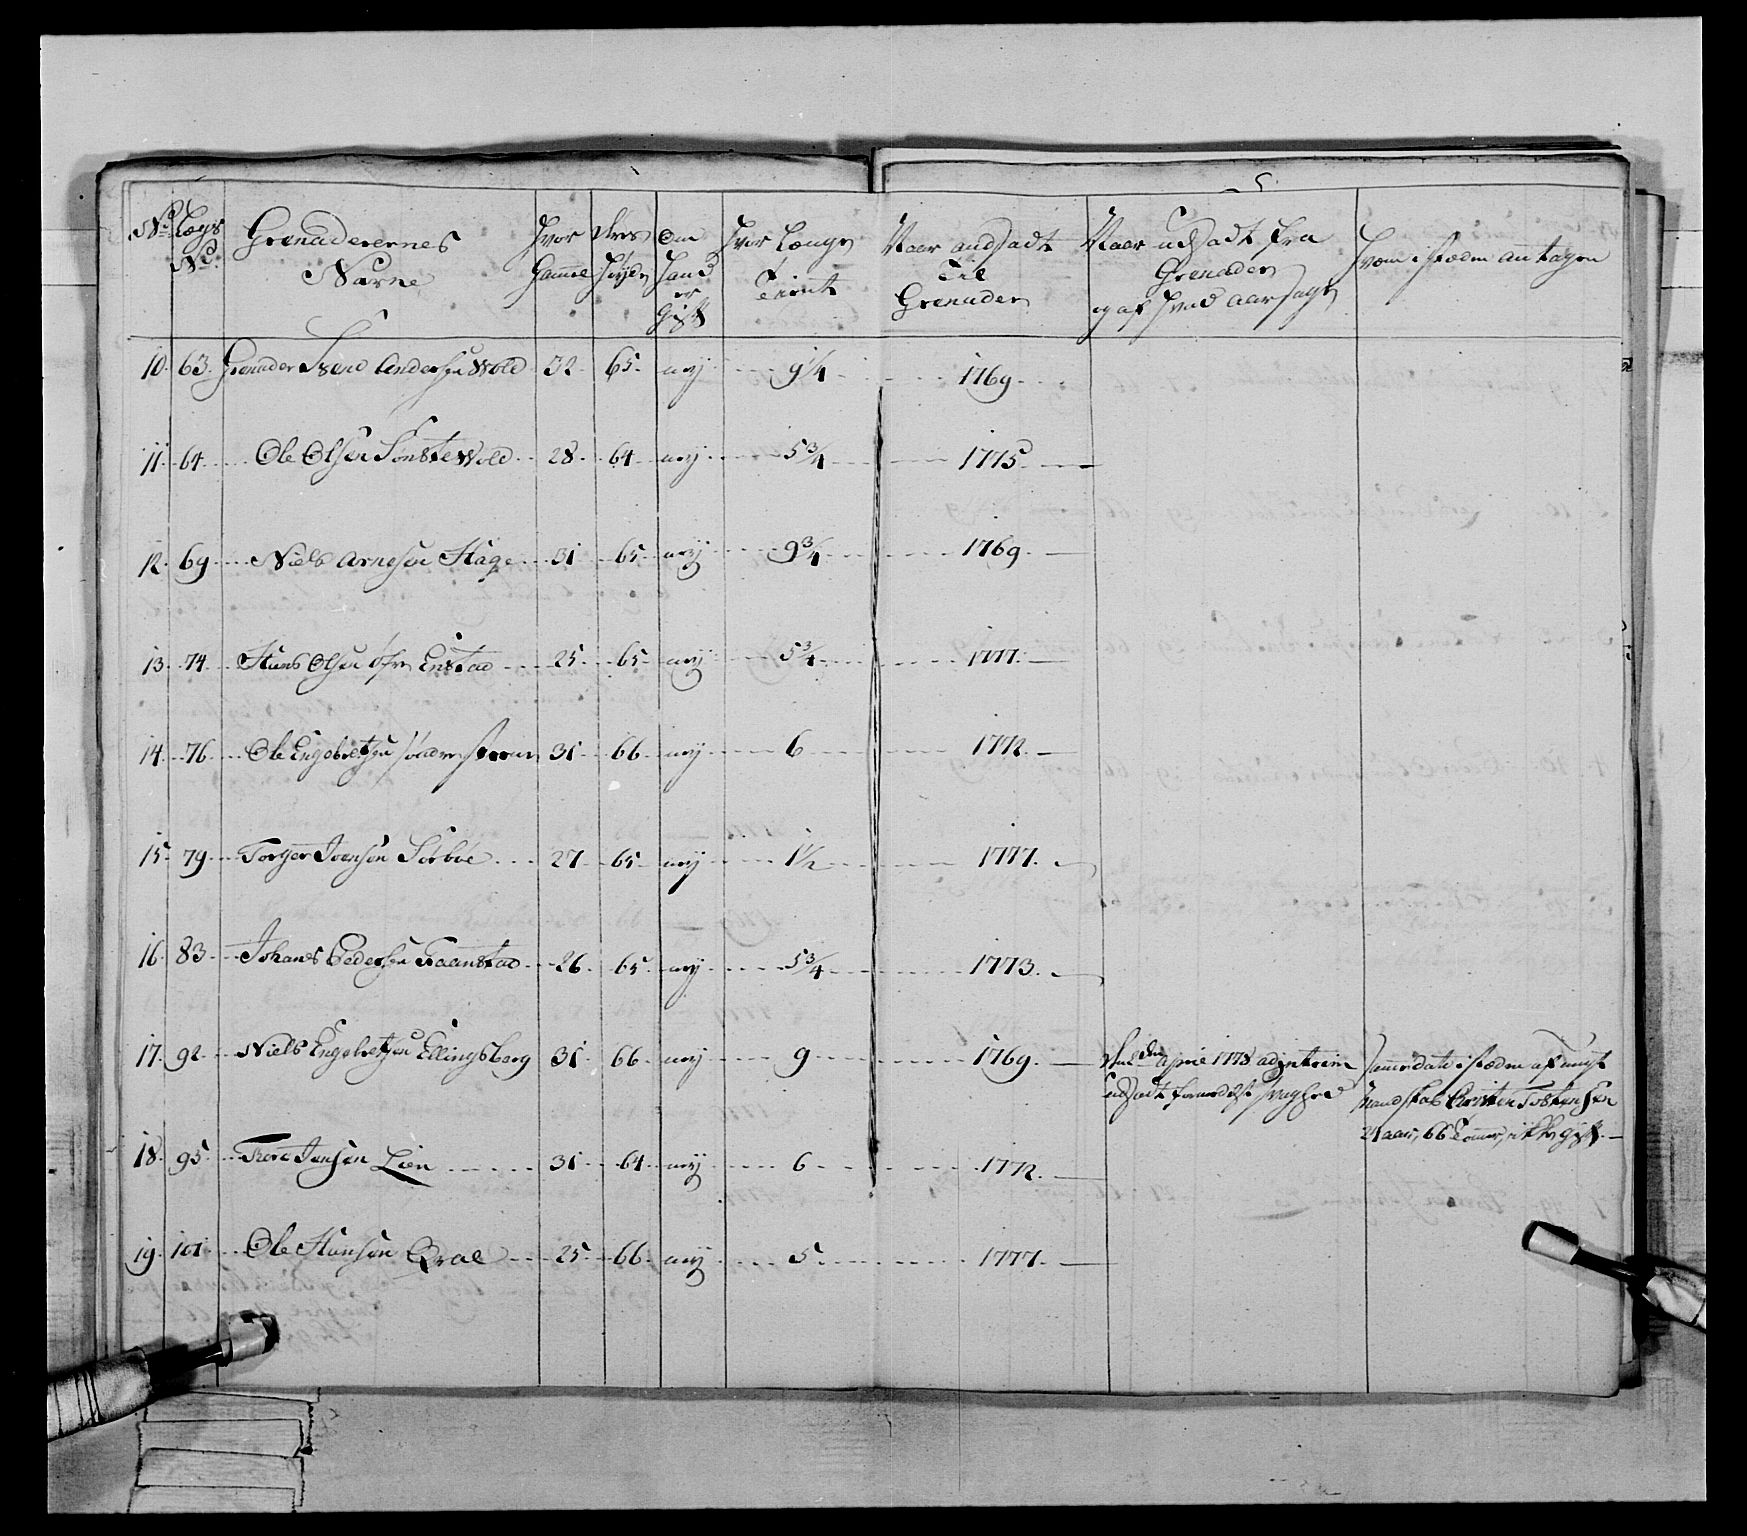 No Lægs No Grenaderernes Navne Hvor Gammel Deres Høyde Om Hand er Gift Hvor Længe Tient Naar andsadt Til Grenader Naar udsadt fra Grenader og af hvad aarsage Hvem i stæden antagen
10. 63. Grenader Svend Andersen Wold 32 65. nej 9 1/4 1769.
11. 64. Ole Olsen SønsteWold 28. 64 nej 5 3/4 1775.
12. 69 Niels Arnesen Hage 31 65 nej 9 3/4 1769.
13. 74. Hans Olsen øfre Enstad 25 65 nej 5 3/4 1777.
14. 76. Ole Engebretsen søndre 31 66 nej 6 1772.
15. 79 Torger Joensøn Sørboe 27 65 nej 1 1/2 1777.
16. 83. Johans Pedersen Raanstad 26 65 nej 5 3/4 1773.
17. 92. Niels Engebretsen Ellingsberg 31 66 nej 9 1769.
April 1778 ad interim
udsadt formedelst svaghed
i stæden af nyt
Mandskab Christen Tostensen
21 aar, 66 Tommer, ikke gift.
18. 95. Tore Jensen Lien 31 64 nej 6 1772.
19. 101. Ole Hansøn Qvale 25 66 nej 5 1777.